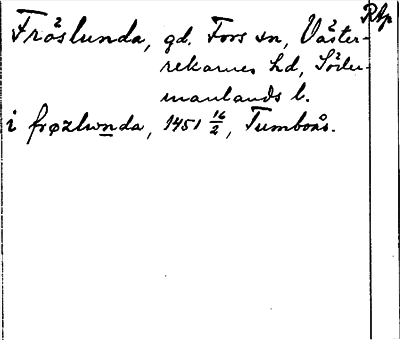 Rbp
Fröslunda, gd. Fors sn, Väster-
rekarnes hd, Söder-
manlands l.
i frøzlwnda, 1451 16/2, Tumboås.